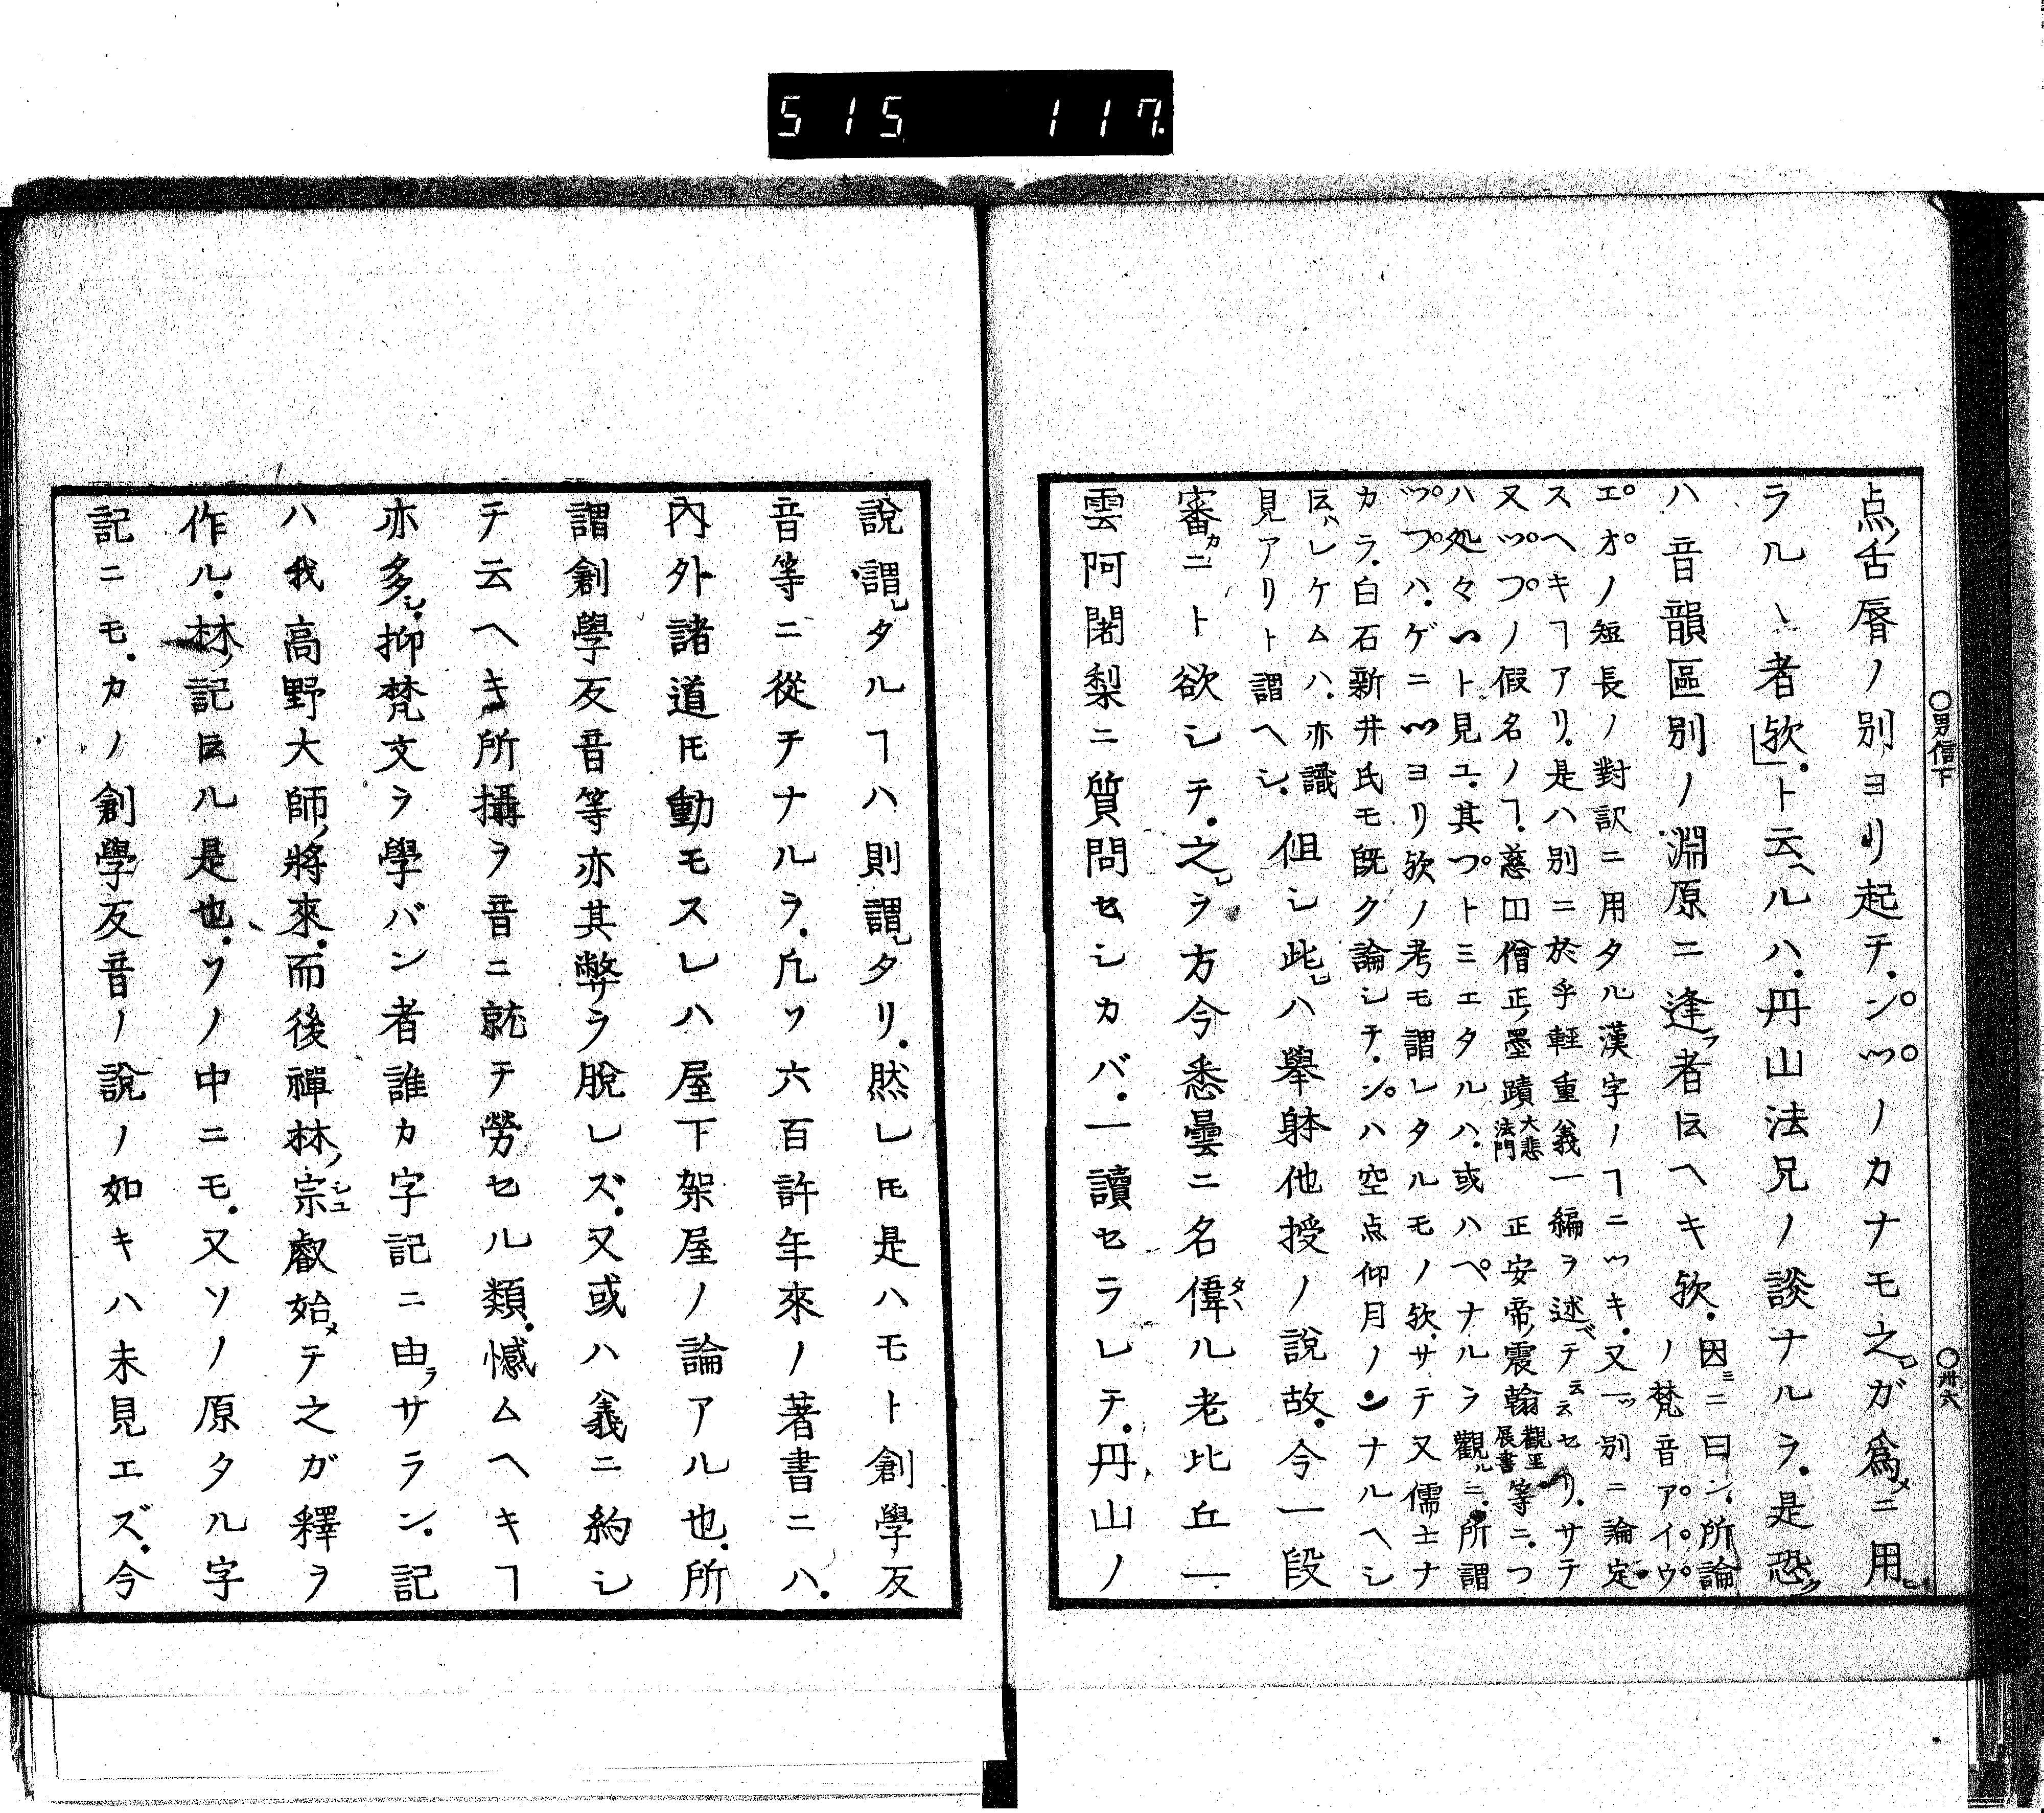 515 117
○男信下 ○卅六
点、舌脣ノ別ヨリ起テ.ン゚ᄁ゚ノカナモ之ガ爲メニ用ヒ
ラルヽ者欤」.ト云ヘルハ.丹山法兄ノ談ナルヲ.是恐ク
ハ音韻區別ノ淵原ニ逢フ者ト云ヘキ欤.
因ミニ曰ン、所論
ノ梵音ア゚イ゚ウ゚
エ゚オ゚ノ短長ノ對訳ニ用タル漢字ノヿニツキ.又一ツ別ニ論定
スヘキヿアリ.是ハ別ニ於乎軽重義一編ヲ述ベテ云云セリ.サテ
又ツ゚つ゚ノ假名ノヿ.慈囗僧正ノ墨蹟大悲法門 正安帝ノ震翰
ハ処々ト見ユ.其つ゚トミエタルハ.或ハペナルヲ觀ルニ.所謂
ハ.ゲニヨリ欤ノ考モ謂レタルモノ欤.サテ又儒士ナ
カラ.白石新井氏モ既ク論シテ.ン゚ハ空点仰月ノンナルヘシ
ト云ハレケムハ.亦識
見アリト謂ヘシ.
但シ此レハ舉躰他授ノ說故.今一段
審カニト欲シテ.之レヲ方今悉曇ニ名偉タヽル老比丘一
雲阿闍梨ニ質問セシカバ.一讀セラレテ.丹山ノ
說、謂レタルヿハ則謂レタリ.然レ𪜈是ハモト創學反
音等ニ從テナルヲ.凡ソ六百許年來ノ著書ニハ.
內外諸道𪜈動モスレハ屋下架屋ノ論アル也.所
謂創學反音等亦其弊ヲ脫レズ.又或ハ義ニ約シ
テ云ヘキ所攝ヲ音ニ就テ勞セル類.憾ムヘキヿ
亦多シ.抑梵文ヲ學バン者誰カ字記ニ由ラサラン.記
ハ我高野大師ノ將來.而後禪林ノ宗シユ叡始メテ之ガ釋ヲ
作ル.林ノ記ト云ル是也.ソノ中ニモ.又ソノ原タル字
記ニモ.カノ創學反音ノ說ノ如キハ未見エズ.今